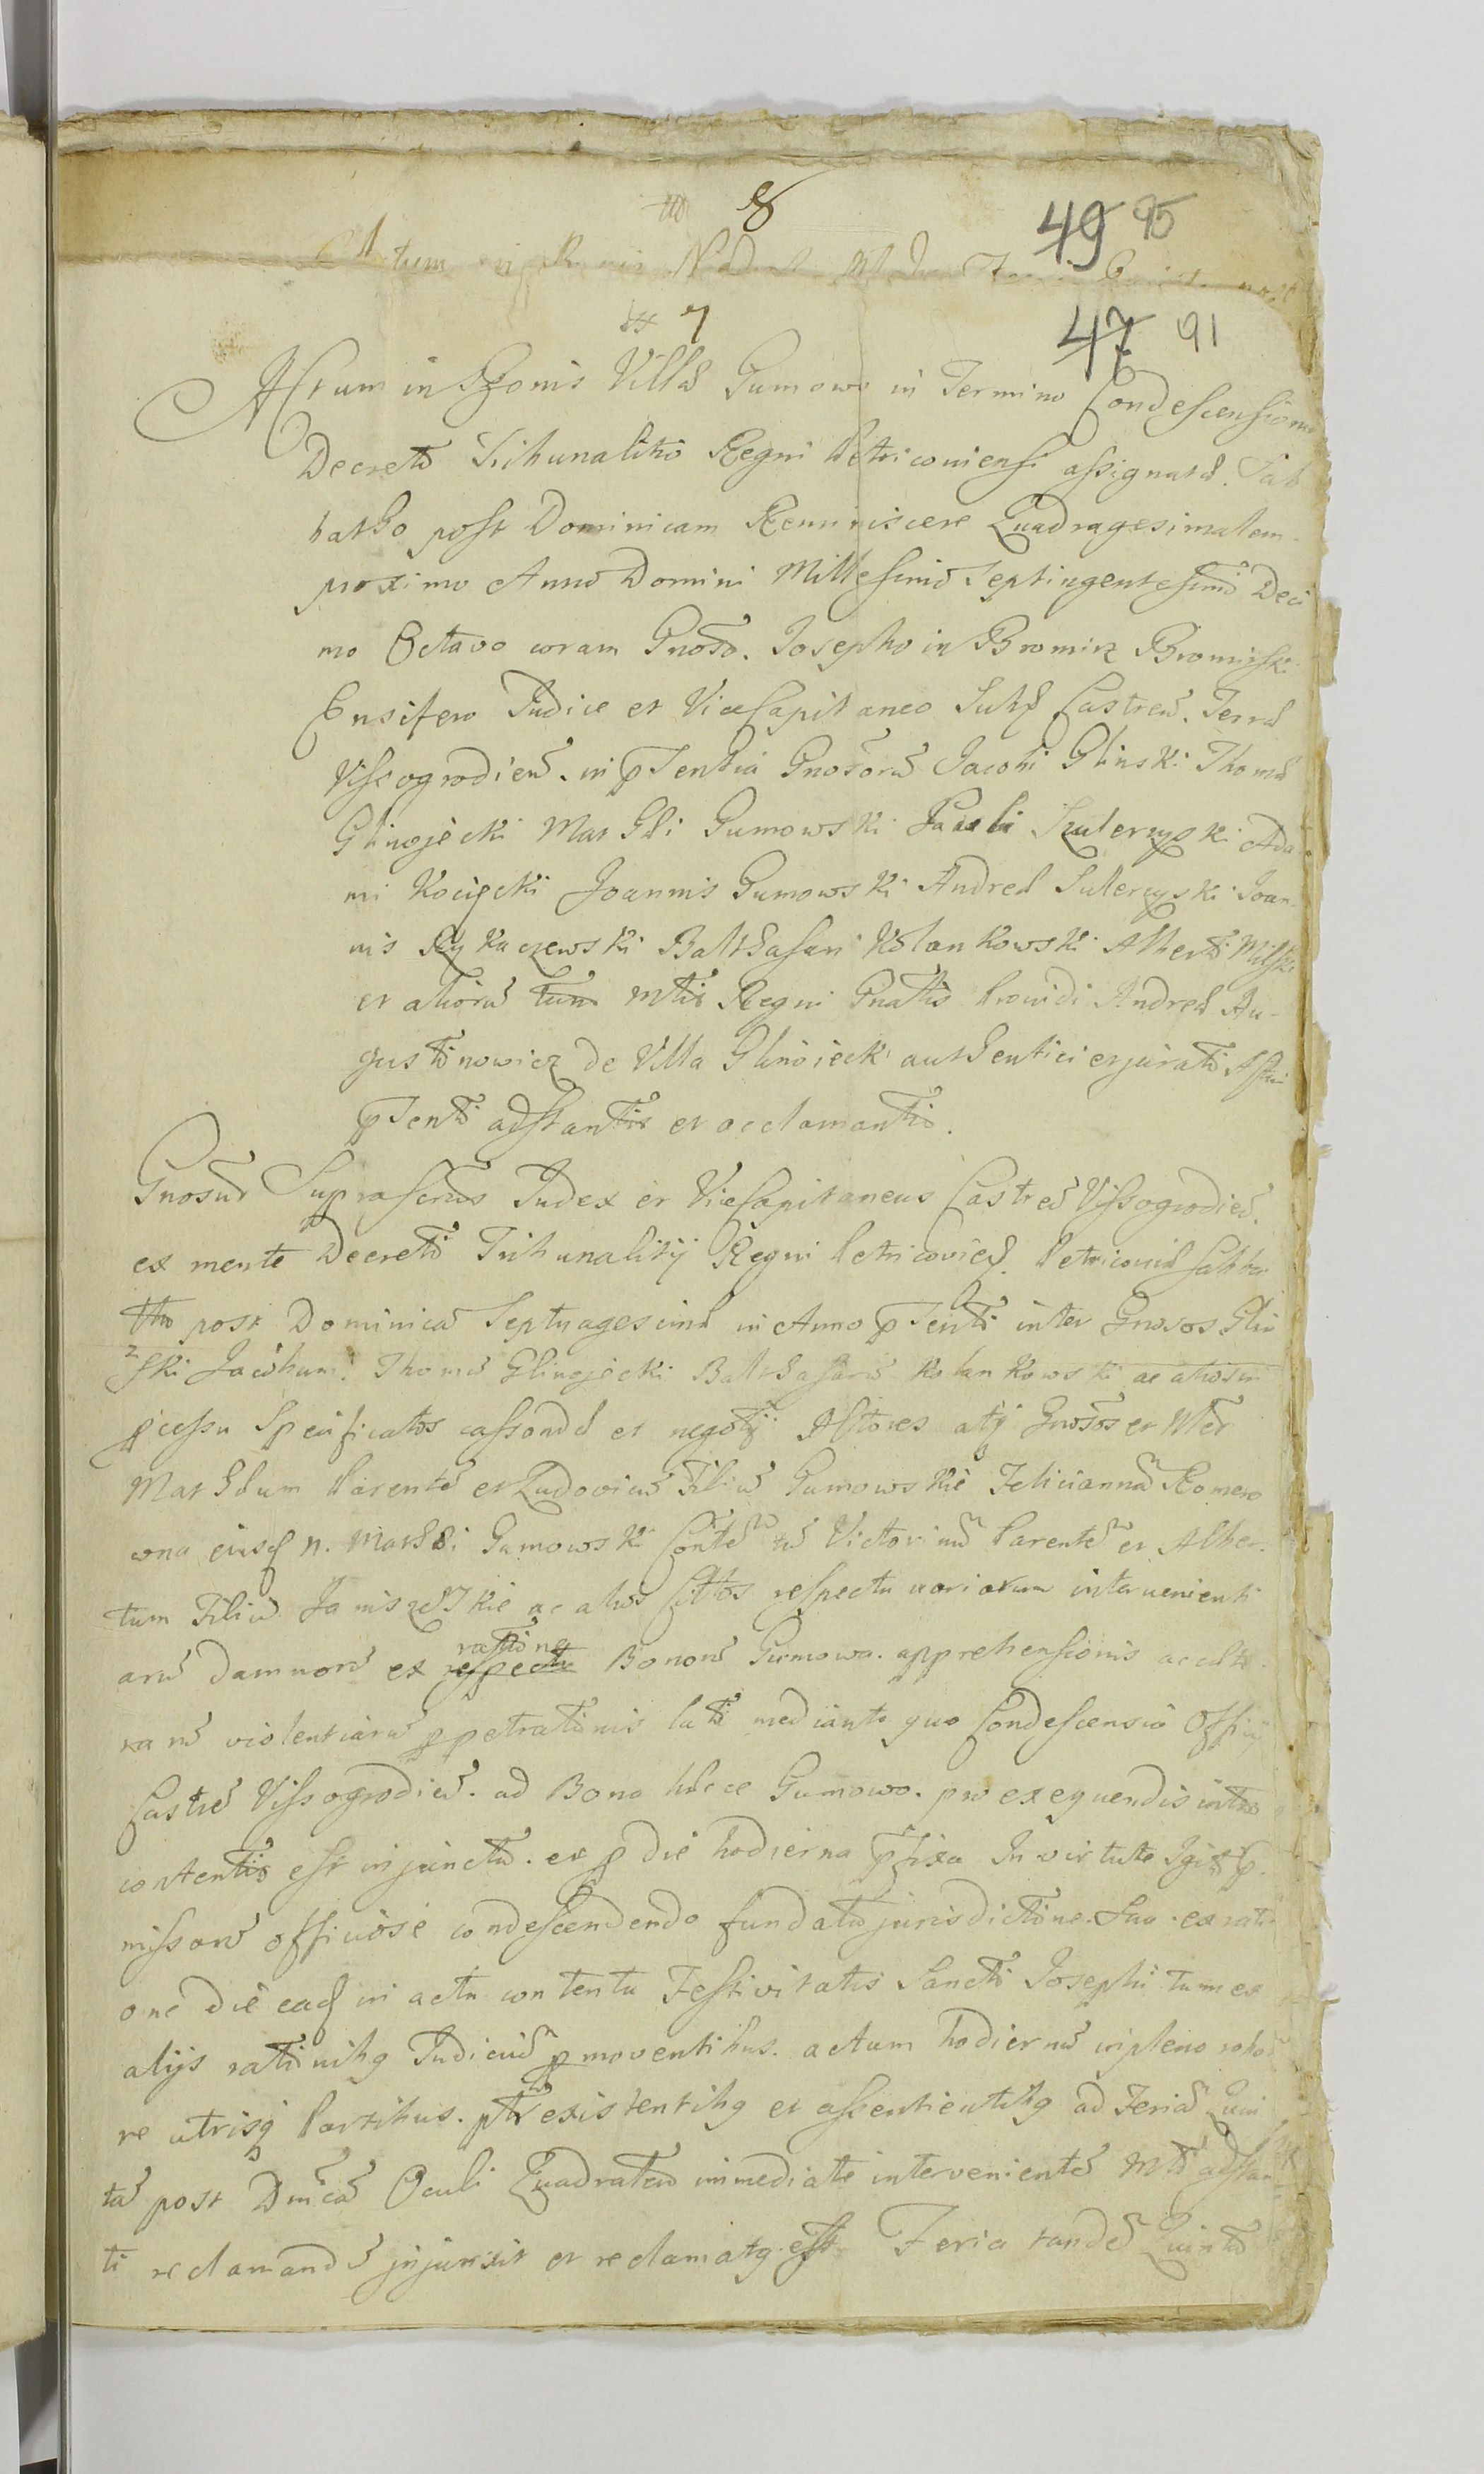 8
49 95
7
47 91
Actum in Bonis Villæ Gumowo in Termino Condescensionis
Decreto Tribunalitio Regni Petricoviensi assignatæ. Sab
batho post Dominicam Reminiscere Quadragesimalem
proximo Anno Domini Millesimo Septingentesimo Deci
mo Octavo coram Gnoso. Josepho in Bromirz Bromirski
Ensifero Judice et ViceCapitaneo Castren. Terræ
Vissogrodien. in pntia Gnosorum Jacobi Glinski Thomæ
Glinojecki Mathæi Gumowski Pauli Szulerzyski Ada
mi Kocięcki Joannis Gumowski Andreæ Sulerzyski Joan
nis Rykaczewski Balthasari Kolankowski Alberti Milski
et aliorum tum Mtis Regni Gnalis Providi Andreæ Au-
gustinowicz de Villa Glinoiecki authentici et jurati
psenti adstantis et acclamantis.
Gnosus Suprascrius Judex et ViceCapitaneus Castren Vissogrodien.
ex mente Decreti Tribunalitij Regni Petricovien. Petricoviæ Sabba
tho post Dominicam Septuagesimæ in Anno psenti inter Gnosos Glin
ski Jacobum. Thomam Glinojecki Balthasarum Kolankowski ac alios in
pcessu Specificatos cassandæ et negotij Actores atq Gnosos et
Mathæum Parentem et Ludovicum Filium Gumowskie Feliciannam Romero
wna eiusq n. Mathæi Gumowski Victorinum Parentem et Alber-
tum Filium Janiszewskie ac alios Cittos respectu variorum intervenienti
arum damnorum ex respectu ratione Bonorum Gumowo. apprehensionis
violentiarum ppetrationis lati mediante quo Condescensio Officij
Castren Vissogrodien. ad Bona hæcce Gumowo. pro exequendis intro
contentis est injunctum. ex p die hodierna pfixa In virtute Igitur p.
missorum officiose condescendendo fundata jurisdictione. Sua. ex rati
one die eaq in actu contenta Festivitatis Sancti Josephi tum ex
alijs rationibq Judicium pmoventibus. actum hodiernum in pleno robo
re utrisq Partibus. existentibq et assentientibq ad Feriam Quin
tam post Dnicam Oculi Quadralem immediate intervenientem Mtli adstan
ti reclamandum injunxit et reclamatq est Feria tandem Quinta